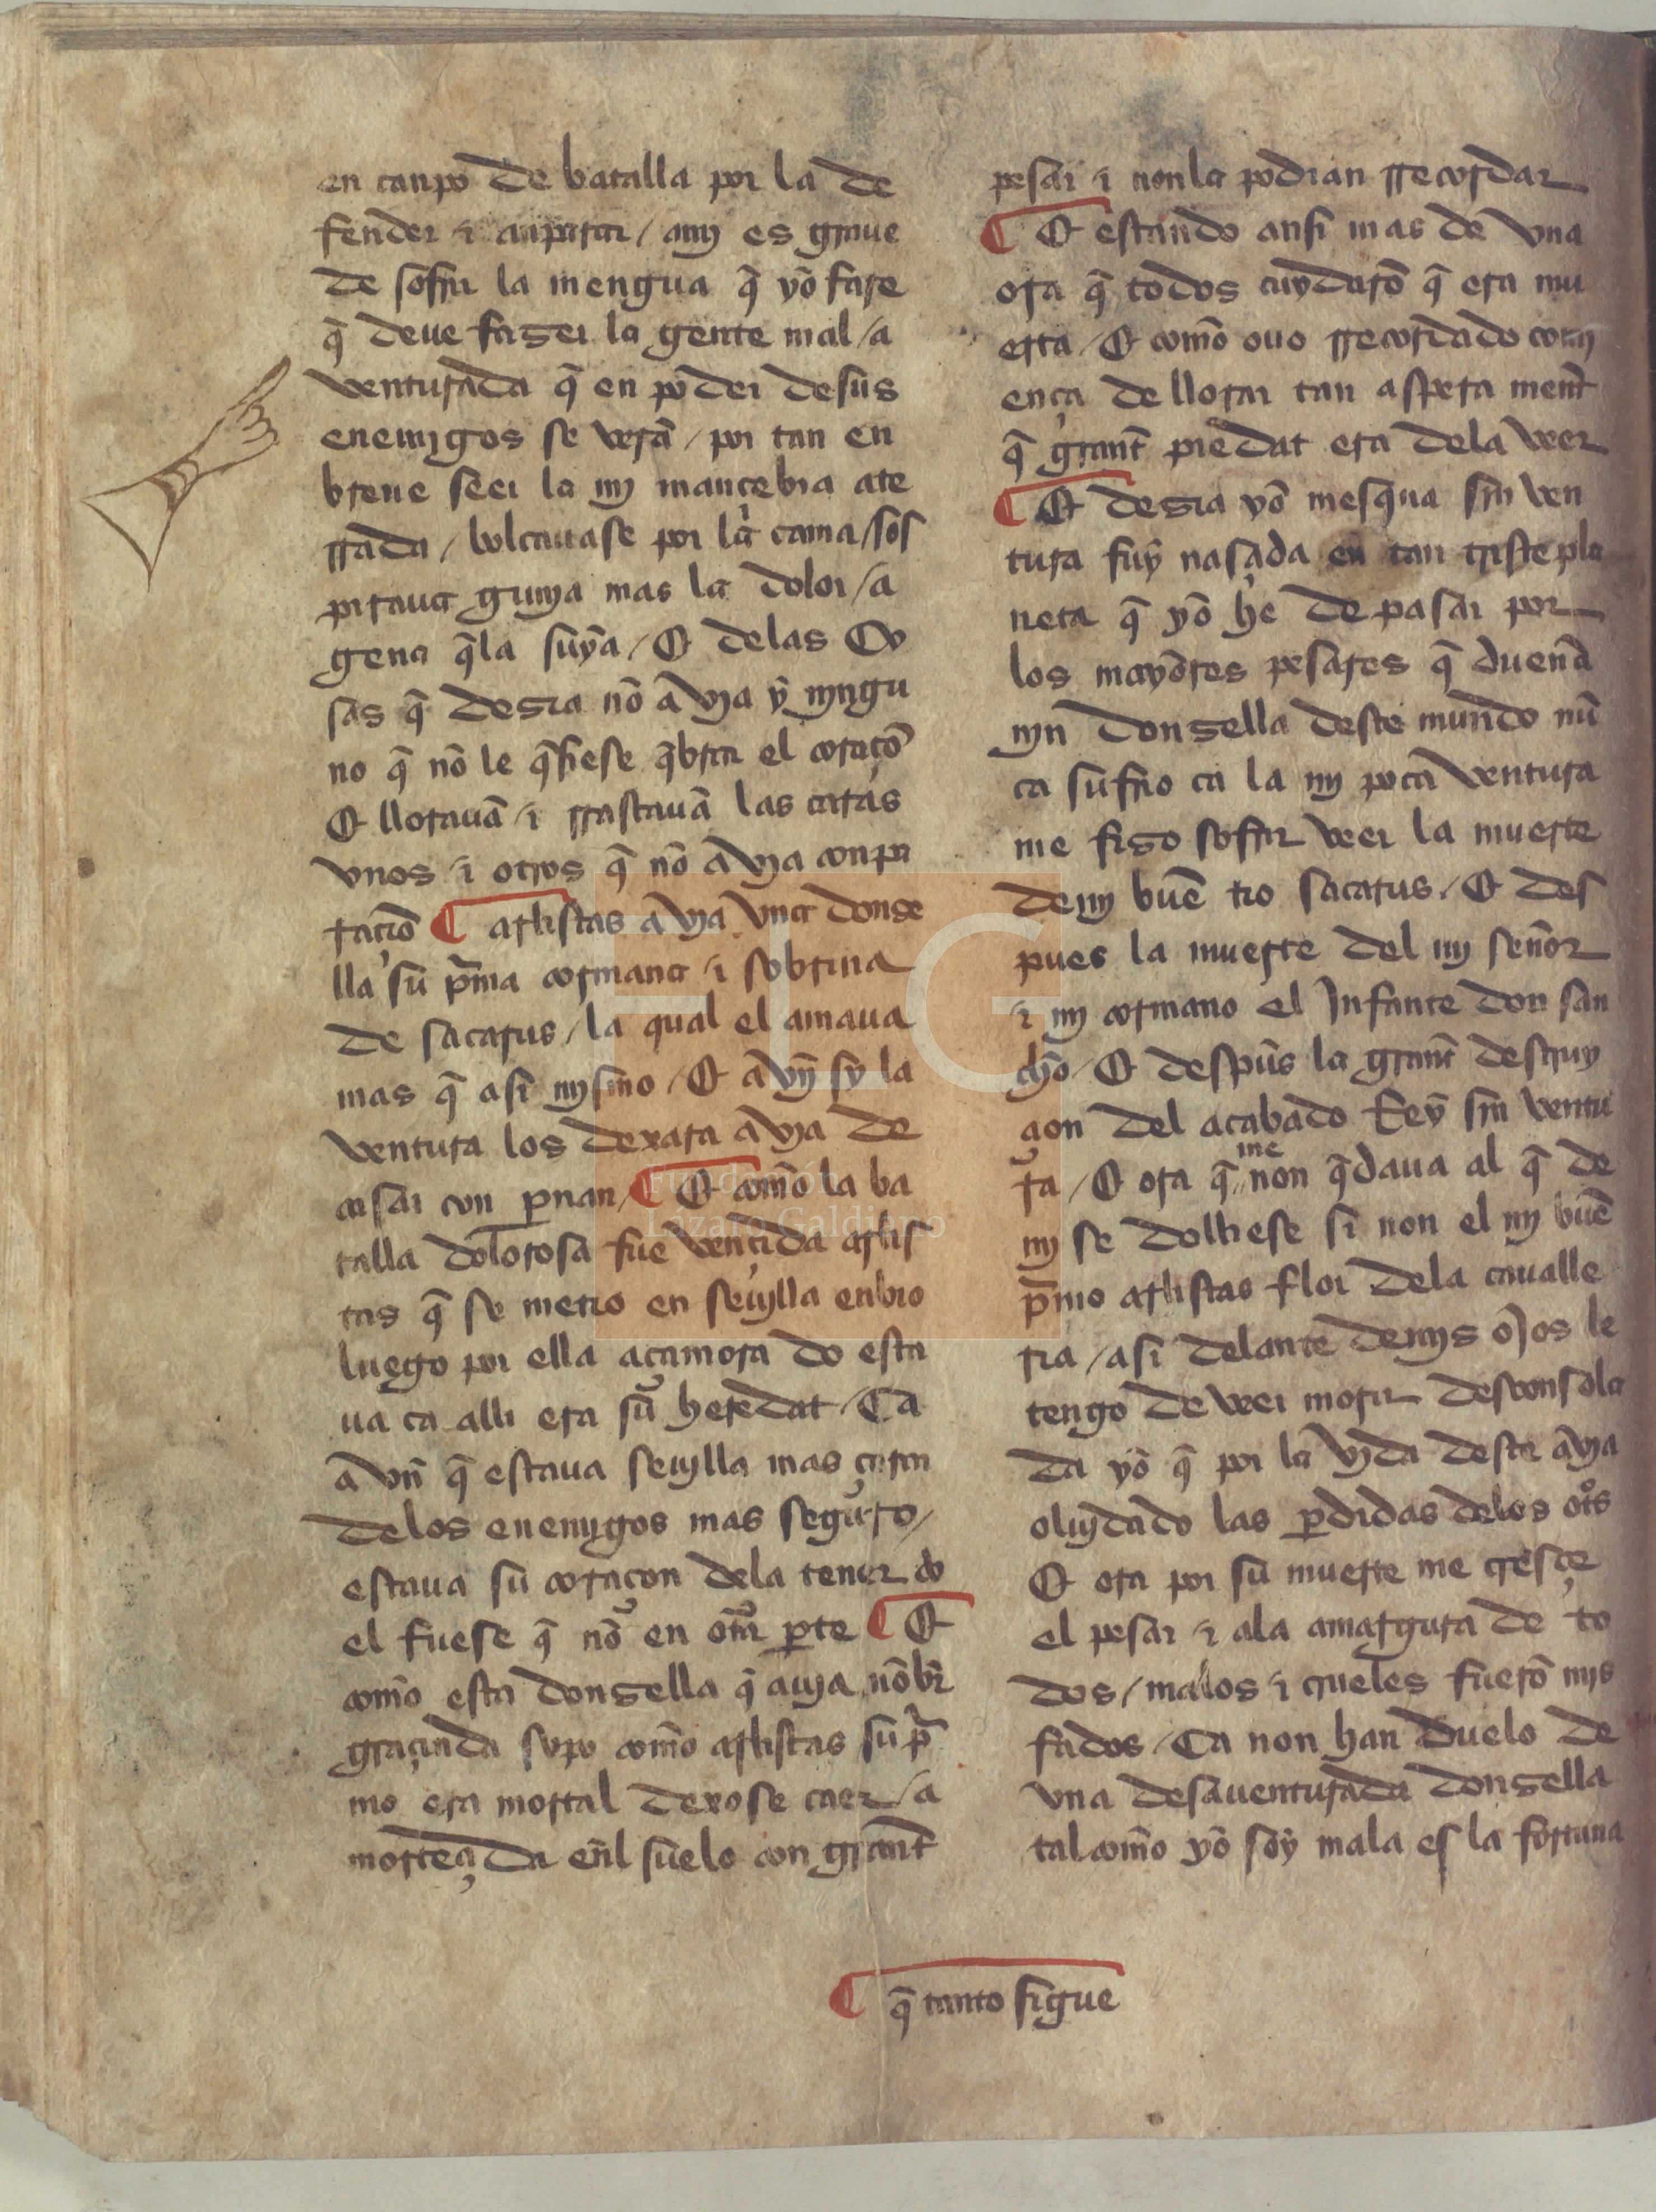 en canpo de batalla por la de
fender i anparar / a mj es graue
de sofrir la mengua q̃ yo fare
q̃ deue faser la gente mal / a
venturada q̃ en poder de sus
enemjgos se verã / por tan en
breue seer la mj mançebia ate
rrada / bolcauase por la cama / sos
piraua gimja mas la dolor / a
gena q̃la suya / Et delas co
sas q̃ desia nõ a vja y njngu
no q̃ nõ le q̃siese q̃brar el coraçõ
Et llorauã / i rrastauã las caras
vnos / i otros q̃ nõ a vja conpa
raçiõ ¶ arlistas a vja vna donse
lla su p̃ma cormana / i sobrina
de sacarus / la qual el amaua
mas q̃ asi mjsmo / Et a vn̄ sy la
ventura los dexara a vja de
casar con pnan / ¶ Et com̃o la ba
talla dolorosa fue vençida arlis
tas q̃ se metio en seujlla enbio
luego por ella açamora do esta
ua ca alli era su heredat / Ca
a vn̄ q̃ estaua seujlla mas çerca
delos enemjgos mas seguro /
estaua su coraçon dela tener do
el fuese q̃ nõ en otr̃a pte ¶ Et
com̃o esta donsella q̃ auja nõbr̃
graçinda sopo com̃o arlistas su p̃
mo era mortal dexose caer / a
morteçida en̄l suelo con grant̃
pesar i non la podian rrecordar
¶ Et estando ansi mas de vna
ora q̃ todos cuydarõ q̃ era mu
erta / Et com̃o ouo rrecordado comj
ença de llorar tan aspera ment̃
q̃ grant̃ piedat era dela veer
¶ Et desia yo mesq̃na sin ven
tura fuy nasçida en tan triste pla
neta q̃ yo he de pasar por
los mayores pesares q̃ dueña
njn donsella deste mundo nũ
ca sufrio ca la mj poca ventura
me fiso sofrir veer la muerte
de mj buẽ tio sacarus / Et des
pues la muerte del mj señor
i mj cormano el Infante don san
cho / Et despũs la grant̃ destruy
çion del acabado Rey sin ventu
ra / Et ora q̃ me non q̃daua al q̃ de
mj se doliese si non el mj buẽ
p̃mo arlistas flor dela cauelle
ria / asi delante de mjs ojos le
tengo de veer morir desconsola
da yo q̃ por la vjda deste avja
olujdado las pdidas delos otros
Et ora por su muerte me cresçe
el pesar i ala amargura de to
dos / malos i crueles fuerõ mjs
fados / Ca non han duelo de
vna desauenturada donsella
tal com̃o yo soy mala es la fortuna
¶ q̃ tanto sigue
FLG
Fundación
Lázaro Galdiano